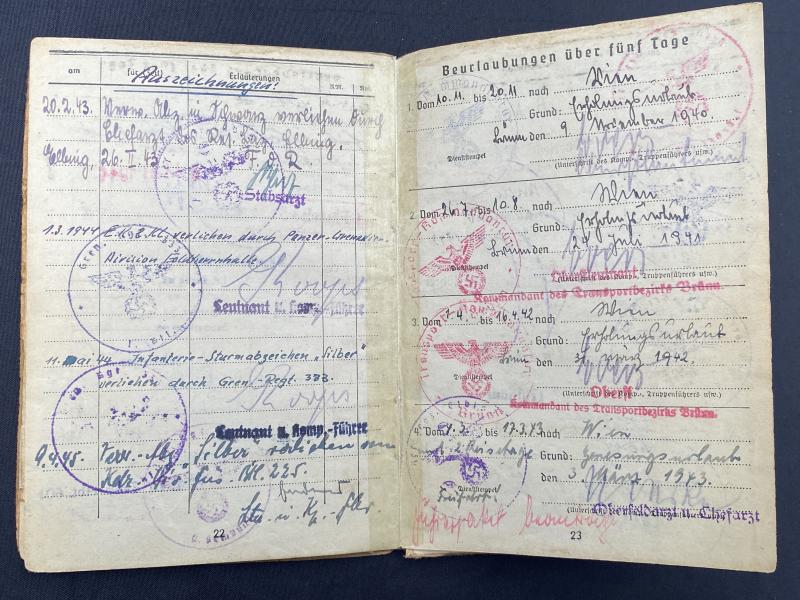 am für (Zeit) Erläuterungen RM. Rpf.
Auszeichnungen!
20.2.43. Verw. Abz. in Schwarz verliehen durch
Chefarzt des Res. Laz. Elbing.
Elbing, 26. II. 43 F. d. R.
Stabsarzt
1.3.1944 E.K. 2. Kl. verliehen durch Panzer-Grenadier-
Division Feldherrnhalle.
Leutnant u. Komp.-Führer
11. Mai 44 Infanterie-Sturmabzeichen „Silber"
verliehen durch Gren.-Regt. 333.
Leutnant u. Komp.-Führer
9.4.45. Verw.-Abz. „Silber" verliehen von
Füs. Btl. 225.
Ltn. u. Kp.-Fhr
22
Beurlaubungen über fünf Tage
1. Vom 10.11. bis 20.11 nach Wien
Grund: Erholungsurlaub
Brünn den 9 November 1940
Dienststempel
(Unterschrift des Komp., Truppenführers usw.)
2. Vom 26.7. bis 10.8. nach Wien
Grund: Erholungsurlaub
Brünn den 24 Juli 1941
Dienststempel
Oberstleutnant
Kommandant des Transportbezirks Brünn.
3. Vom 1.4. bis 16.4.42 nach Wien
Grund: Erholungsurlaub
Brünn den 31. März 1942.
Dienststempel
(Unterschrift des Komp., Truppenführers usw.)
Oberst
Kommandant des Transportbezirks Brünn.
4. Vom 4.3. bis 17.3.43 nach Wien
2 Reisetage Grund: Genesungsurlaub
den 3. März 1943.
Dienststempel
Oberfeldarzt u. Chefarzt
23